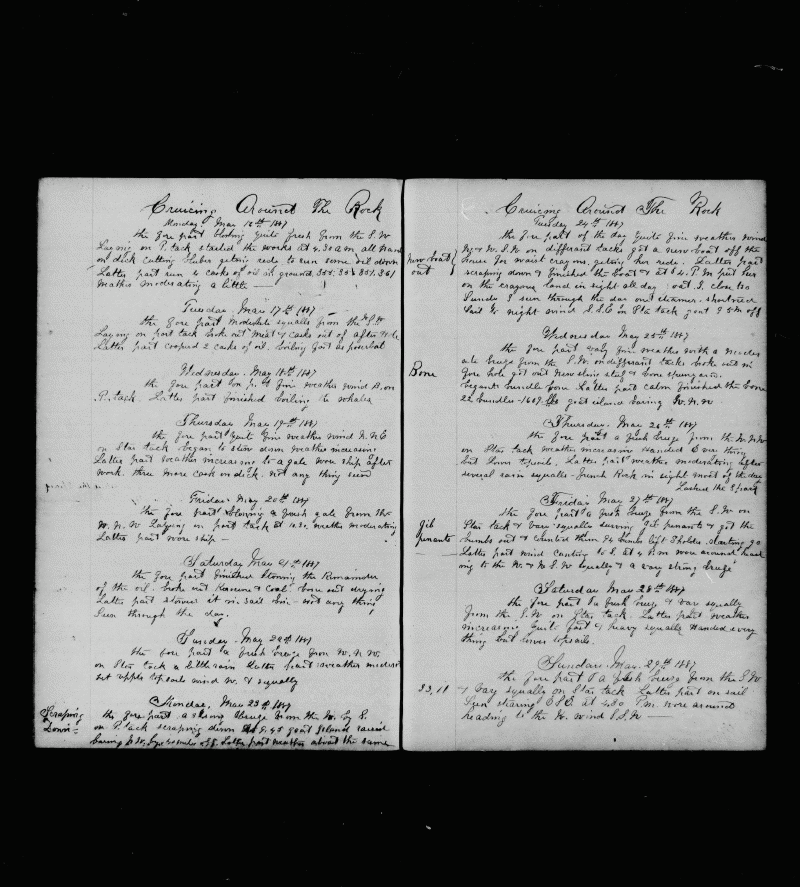 Cruicing Around The Rock
Monday May 16th 1887
the fore part blowing quite fresh from the S.W
Laying on P. tack started the works at 4.30 a m all hands
on deck cutting blubber getting ride to run some oil down
Latter part run 4 casks of oil in ground. 355. 356 357. 361
weather moderating a little —
Tuesday May 17th 1887
the fore part moderate squalls from the W.S.W
Laying on port tack broke out meat & casks out of after hole
Latter part coopred 2 casks of oil. boiling fast as possibal
Wednesday May 18th 1887
the fore part fine weather wind S. on
P. tack. Latter part finished boiling the whale
Thursday May 19th 1887
the fore part quite fine weather wind N.N.E
on Star tack began to stow down weather increasing
Latter part weather increasing to a gale wore ship after
work. three more cask on deck. not any thing seen
Friday May 20th 1887
the fore part blowing a fresh gale from the
W.N.W Laying on port tack at 10.30. weather moderating
Latter part wore ship —
Saturday May 21th 1887
the fore part finished stowing the Remainder
of the oil. broke out & Coal. bone out drying
Latter part stowed it in sail bin — not any thing
Seen through the day.
Sunday. May 22th 1887
the fore part a fresh breeze from W.N.W.
on Star tack a little rain Latter part weather moderate
set upper topsails wind W. & squally
Monday, May 23th 1887
Scraping
Down
the fore part a strong breeze from the W. by S.
on P. tack scraping down at 9.45 goat Island raised
baring E.N. by 40 miles off Latter part weather about the same
Cruicing Around The Rock
Tuesday 24th 1887
new boat
out
the fore part of the day quite fine weather wind
W. & W.S.W on diffrant tacks got a new boat off the
house for waist crayns, geting her ride. Latter part
scraping down & finished the boat & at 6 P.M put her
on the crayns land in sight all day: out S. close too
Sundy I seen through the day one steamer. shortened
Sail & night wind S.S.E on Sta tack goat I 25 m off
Wednesday May 25th 1887
Bone
the fore part very fine weather with a moder
ate breeze from the S.W. on diffrant tacks broke out in
fore hole got out new slush & bone spunyarn.
began to bundle bone Latter part calm finished the bone
22 bundles — 1609. lbs goat island baring W.N.W
Thursday. May 26th 1887
the fore part a fresh breeze from the W.N.W
on Star tack weather increasing Handed Every thing
but Lower topsails. Latter part weather moderating after
several rain squalls. french Rock in sight most of the day
Lashed the spars
Friday May 27th 1887
gib
penants
the fore part a fresh breeze from the S.W on
Star tack & vary squally serving gib penants & got the
out & counted them left
Latter part wind canting to S. at 4 P.M wore around head
ing to the W. & W.S.W squally & a vary strong breeze
Saturday May 28th 1887
the fore part a fresh breez & vary squally
from the S.W on Star tack. Latter part weather
increasing quite fast & heavy squalls Handed every
thing but lower topsails.
Sunday. May. 29th 1887
33,11
the fore part a fresh breez from the S.W
& vary squally on Star tack Latter part on sail
Seen stearing E.S.E at 4.30 P.m. wore around
heading to the W. wind S.S.W —